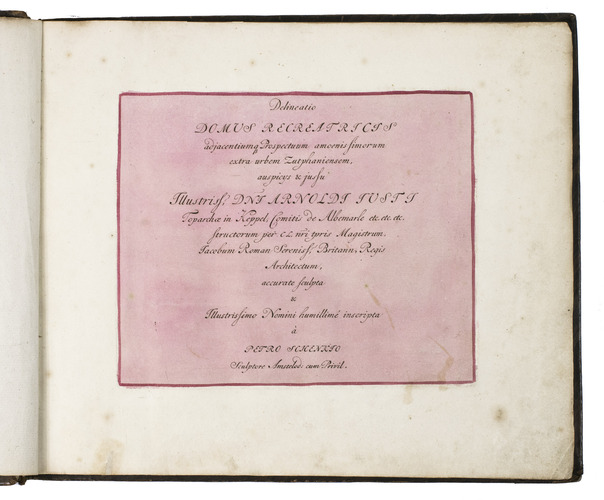 Delineatio
DOMUS RECREATRICIS
adjacentiumq. Prospectuum amoenissimorum
extra urbem Zutphaniensem,
auspicys & jussu
Illustriss. DNI ARNOLDI IUSTI
Toparchæ in Keppel, Comitis de Albemarle etc. etc. etc.
structorum per CL. uri tpris Magistrum.
Jacobum Roman Sereniss. Britann. Regis
Architectum,
accurate sculpta
&
Illustrissimo Nomini humillimè inscripta
à
PETRO SCHENKIO
Sculptore Amstelod: cum Privil.